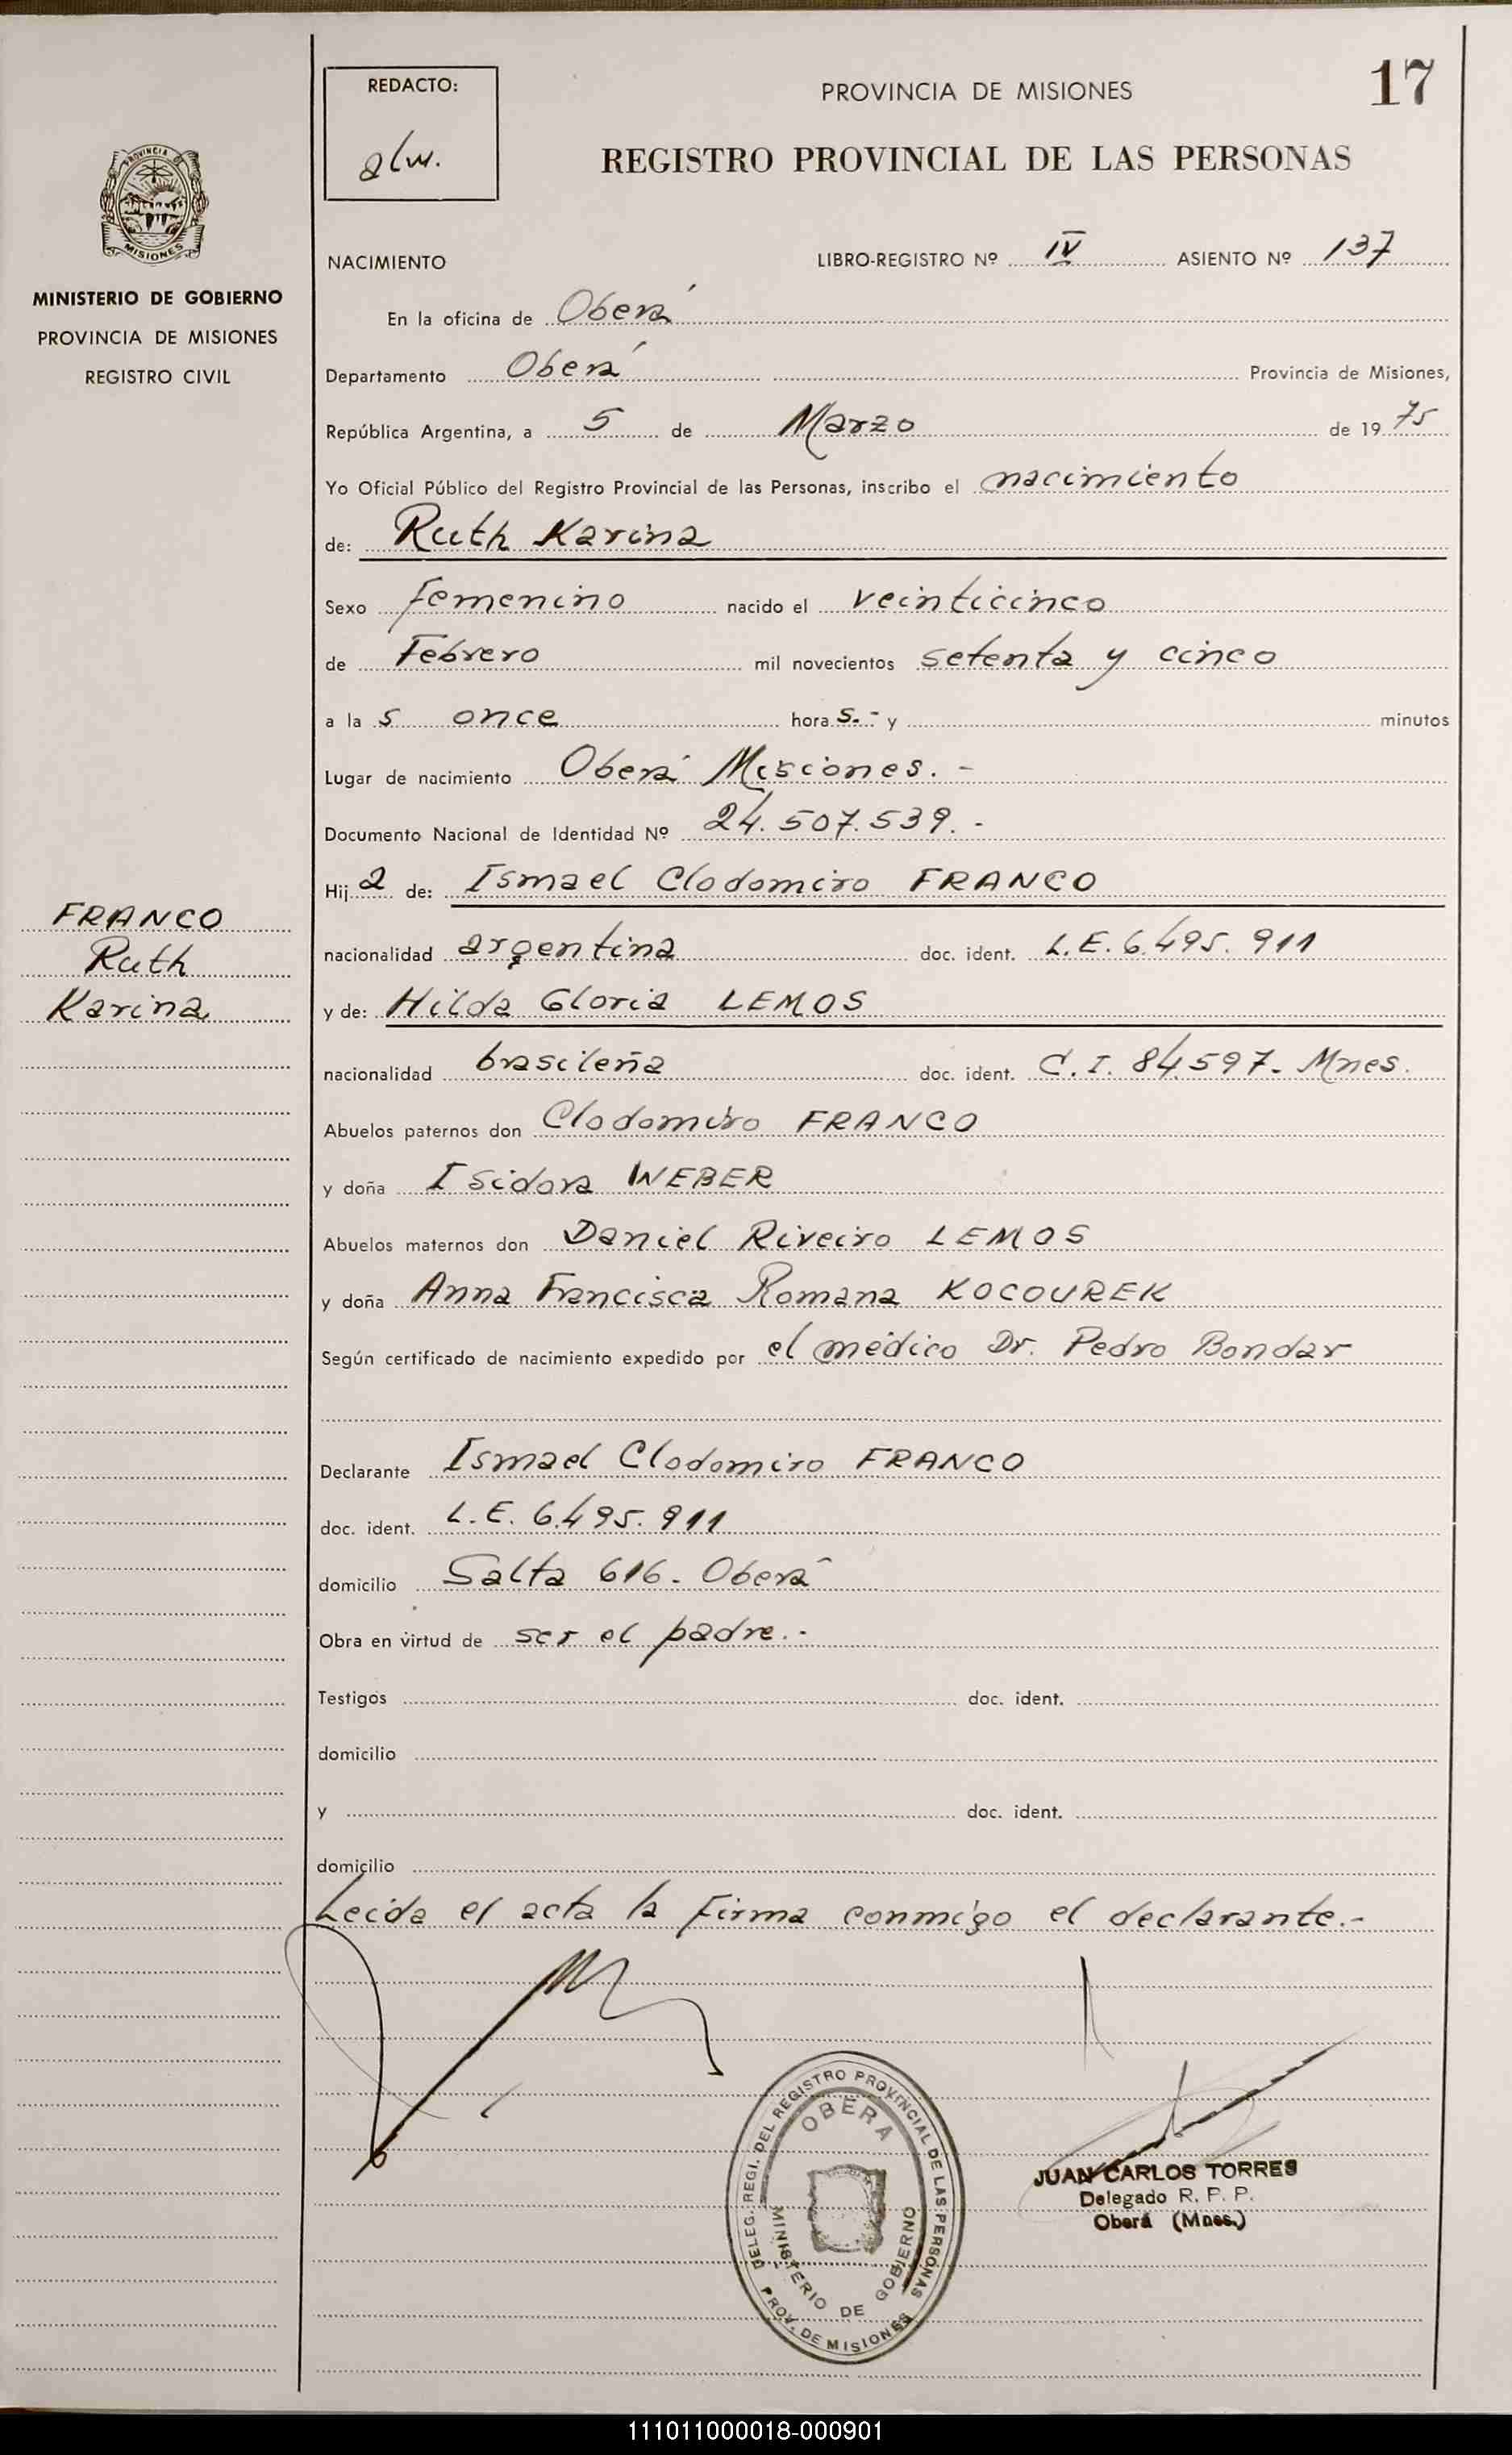 17
REDACTO:
PROVINCIA DE MISIONES
REGISTRO PROVINCIAL DE LAS PERSONAS
PROVINCIA DE
MISIONES
MINISTERIO DE GOBIERNO
PROVINCIA DE MISIONES
REGISTRO CIVIL
NACIMIENTO LIBRO-REGISTRO Nº IV ASIENTO Nº 137
En la oficina de Oberá
Departamento Oberá Provincia de Misiones,
República Argentina, a 5 de Marzo de 1975
Yo Oficial Público del Registro Provincial de las Personas, inscribo el nacimiento
de: Ruth Karina
Sexo femenino nacido el veinticinco
de Febrero mil novecientos setenta y cinco
a la s once hora s.- y minutos
Lugar de nacimiento Oberá Misiones.-
Documento Nacional de Identidad Nº 24.507.539.-
Hija de: Ismael Clodomiro FRANCO
nacionalidad argentina doc. ident. L.E. 6.495.911
y de: Hilda Gloria LEMOS
nacionalidad brasileña doc. ident. C.I. 84.597- Mnes.
Abuelos paternos don Clodomiro FRANCO
y doña Isidora WEBER
Abuelos maternos don Daniel Riveiro LEMOS
y doña Anna Francisca Romana KOCOUREK
Según certificado de nacimiento expedido por el médico Dr. Pedro Bondar
Declarante Ismael Clodomiro FRANCO
doc. ident. L.E. 6.495.911
domicilio Salta 616- Oberá
Obra en virtud de ser el padre.-
Testigos doc. ident.
domicilio
y doc. ident.
domicilio
Leida el acta la firma conmigo el declarante.-
FRANCO
Ruth
Karina
DELEG. REGI. DEL REGISTRO PROVINCIAL DE LAS PERSONAS
OBERA
MINISTERIO DE GOBIERNO
PROV. DE MISIONES
JUAN CARLOS TORRES
Delegado R. P. P.
Oberá (Mnes.)
111011000018-000901